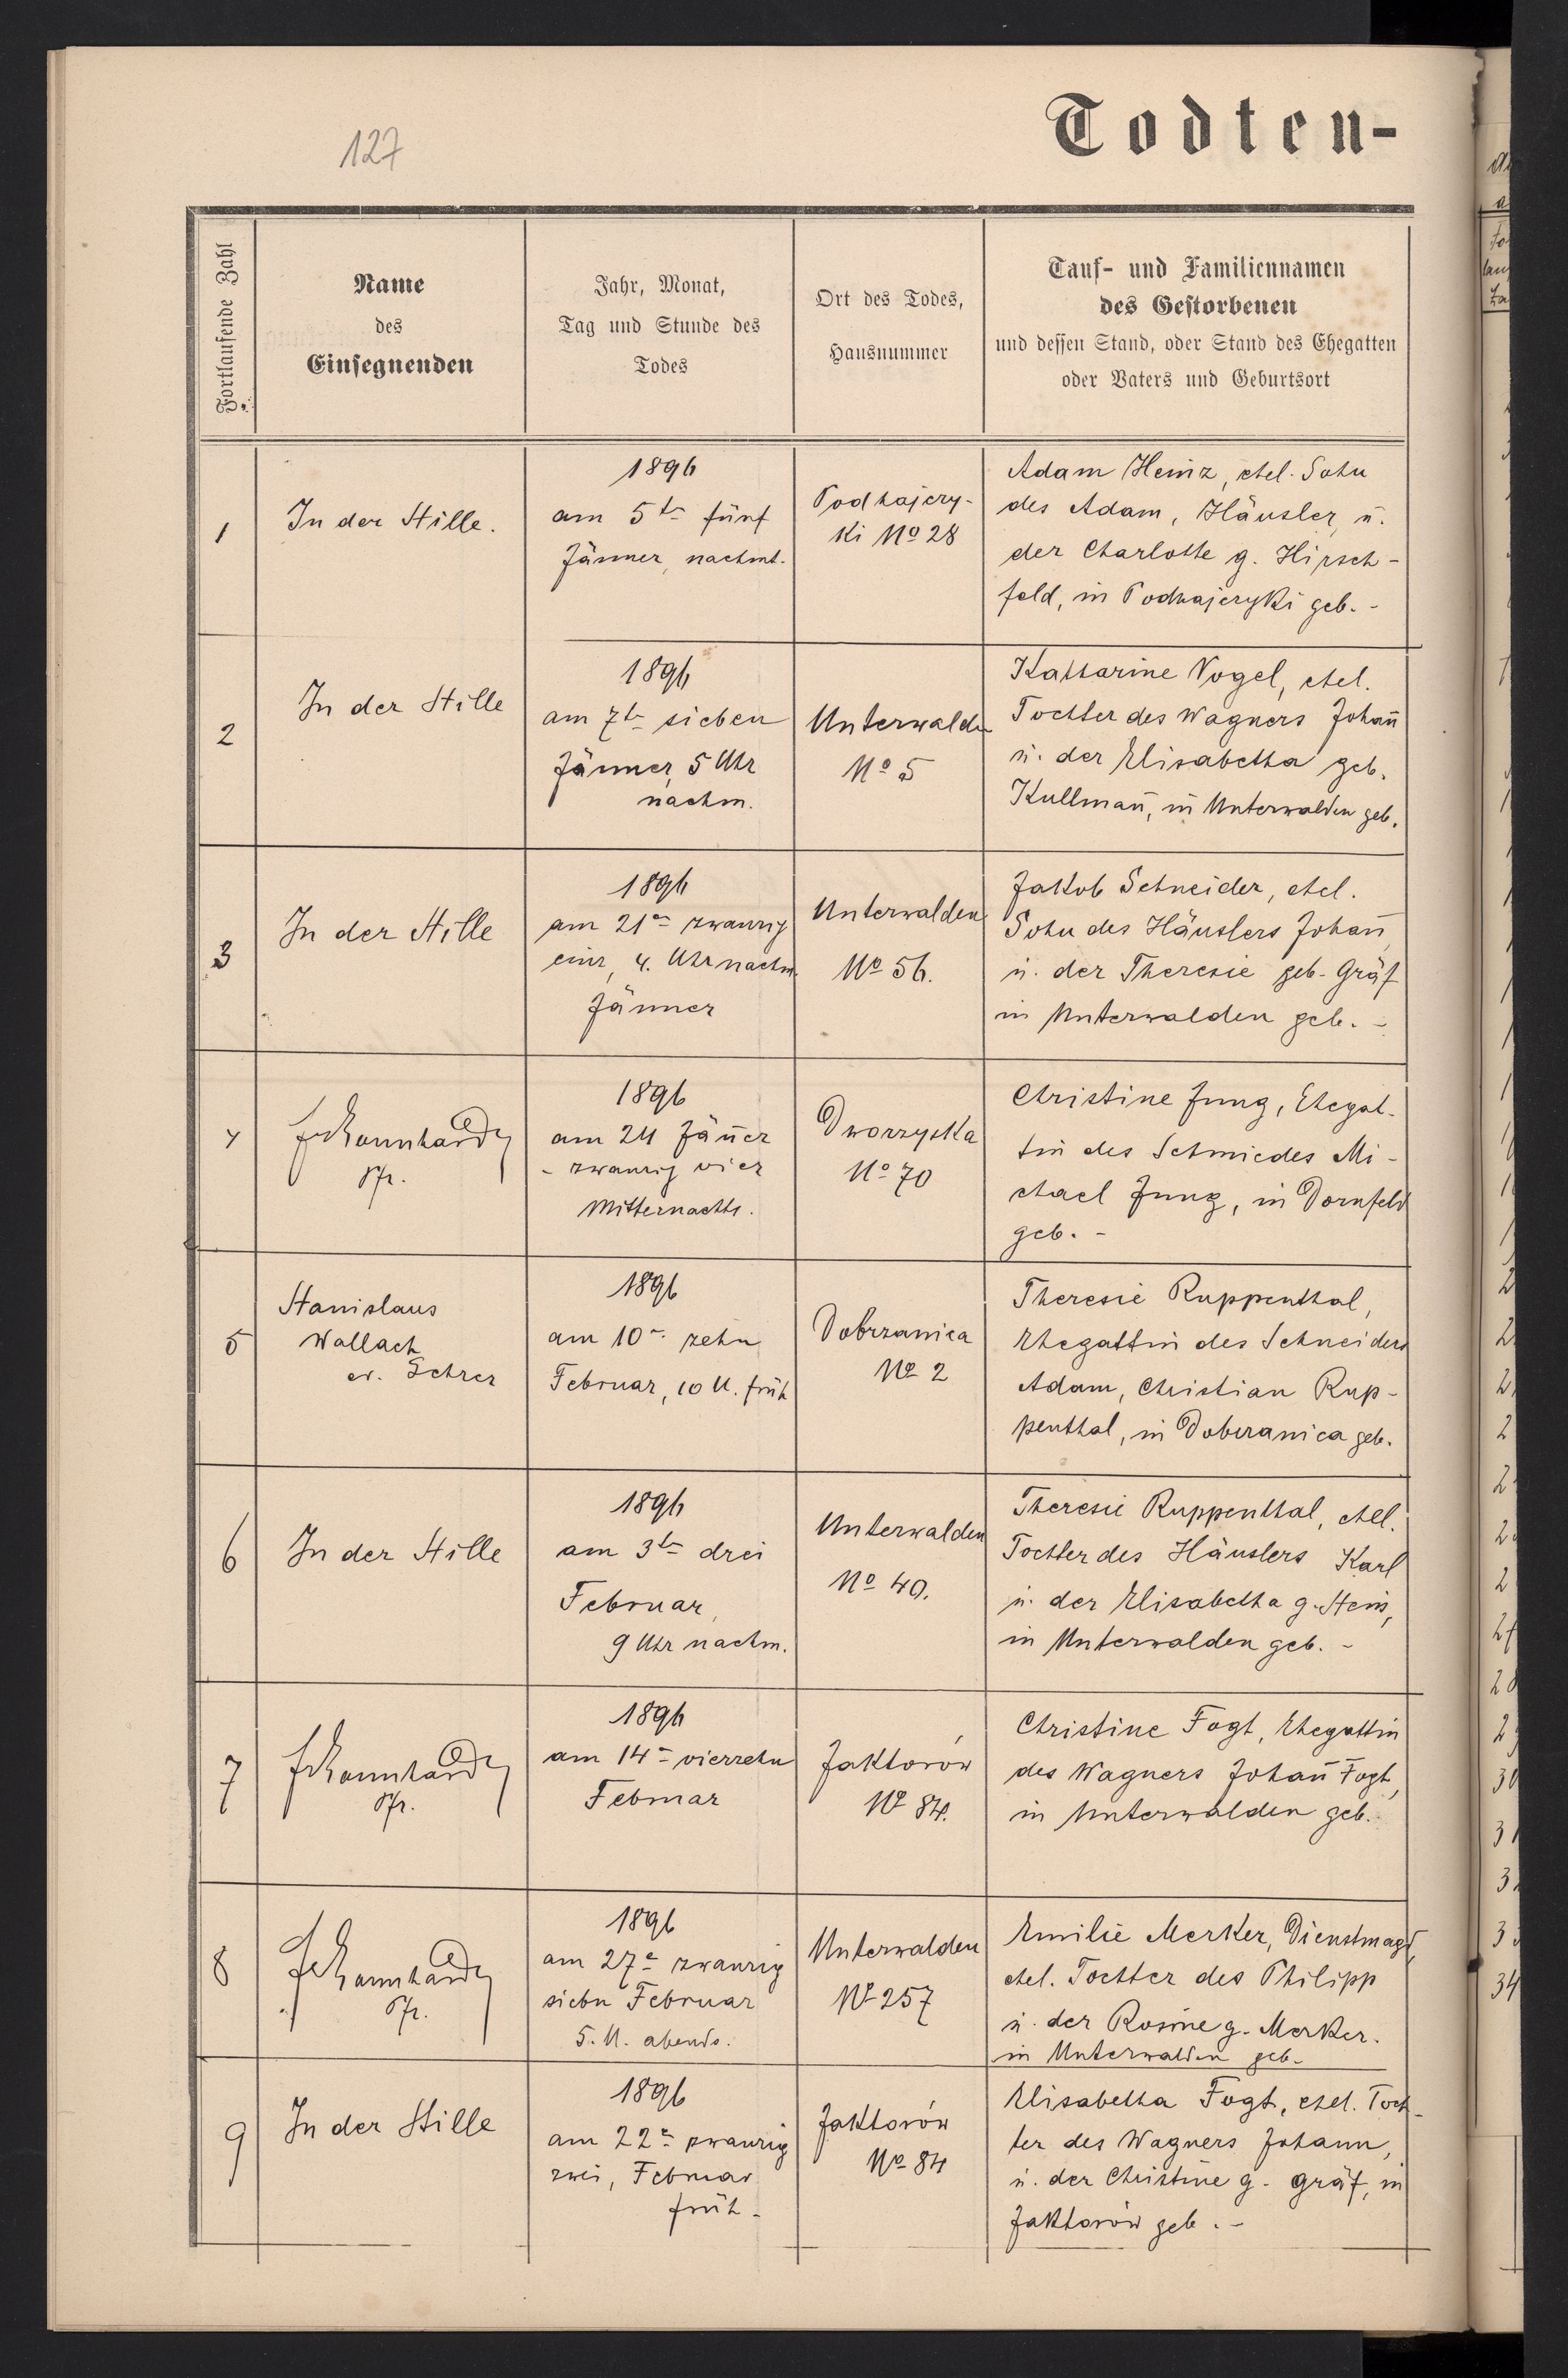 127
Todten-
Fortlaufende Zahl
Name
des
Einsegnenden
Jahr, Monat,
Tag und Stunde des
Todes
Ort des Todes,
Hausnummer
Tauf- und Familiennamen
des Gestorbenen
und dessen Stand, oder Stand des Ehegatten
oder Vaters und Geburtsort
1
In der Stille.
1896
am 5te fünf
Jänner, nachmt.
Podhajczy-
ki No 28
Adam Heinz, ehel. Sohn
des Adam, Häusler, u.
der Charlotte g. Hirsch-
feld, in Podhajczyki geb. -
2
In der Stille
1896
am 7te sieben
Jänner, 5 Uhr
nachm.
Unterwalden
No 5
Katharine Vogel, ehel.
Tochter des Wagners Johan̄
u. der Elisabetha geb.
Kullman̄, in Unterwalden geb.
3
In der Stille
1896
am 21en zwanzig
einz, 4. Uhr nachm.
Jänner
Unterwalden
No 56.
Jakob Schneider, ehel.
Sohn des Häuslers Johan̄,
u. der Theresie geb. Gräf
in Unterwalden geb. -
4
Pfr.
1896
am 24 Jän̄er
- zwanzig vier
Mitternachts.
Dworzyska
No 70
Christine Jung, Ehegat-
tin des Schmiedes Mi-
chael Jung, in Dornfeld
geb. -
5
Stanislaus
Wallach
ev. Lehrer
1896
am 10n. zehn
Februar, 10 U. früh
Dobrzanica
No 2
Theresie Ruppenthal,
Ehegattin des Schneiders
Adam, Christian Rup-
penthal, in Dobrzanica geb.
6
In der Stille
1896
am 3te drei
Februar,
9 Uhr nachm.
Unterwalden
No 40.
Theresie Ruppenthal, ehel.
Tochter des Häuslers Karl
u. der Elisabetha g. Stein,
in Unterwalden geb. -
7
Pfr.
1896
am 14n vierzehn
Februar
Jaktorów
No 84.
Christine Fogt, Ehegattin
des Wagners Johan̄ Fogt,
in Unterwalden geb.
8
Pfr.
1896
am 27e zwanzig
siebn Februar
5. U. abends.
Unterwalden
No 257
Emilie Merker, Dienstmagd,
ehel. Tochter des Philipp
u. der Rosine g. Merker.
in Unterwalden geb.
9
In der Stille
1896
am 22n zwanzig
zwei, Februar
früh -
Jaktorów
No 84
Elisabetha Fogt, ehel. Toch-
ter des Wagners Johann,
u. der Christine g. Gräf, in
Jaktorów geb. -